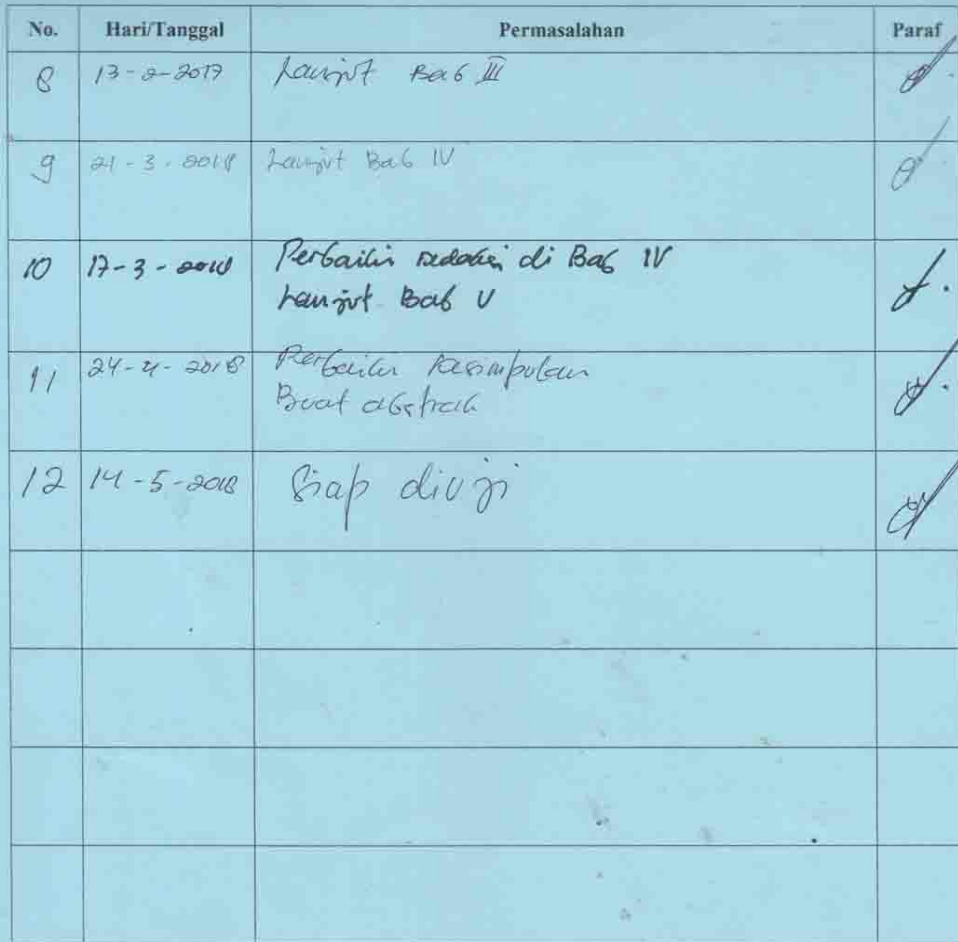 No. Hari/Tanggal Permasalahan Paraf
8 13-2-2017 Lanjut Bab III
9 21-3-2018 Lanjut Bab IV
10 17-3-2018 Perbaiki redaksi di Bab IV
Lanjut Bab V
11 24-4-2018 Perbaiki kesimpulan
Buat abstrak
12 14-5-2018 Siap diuji